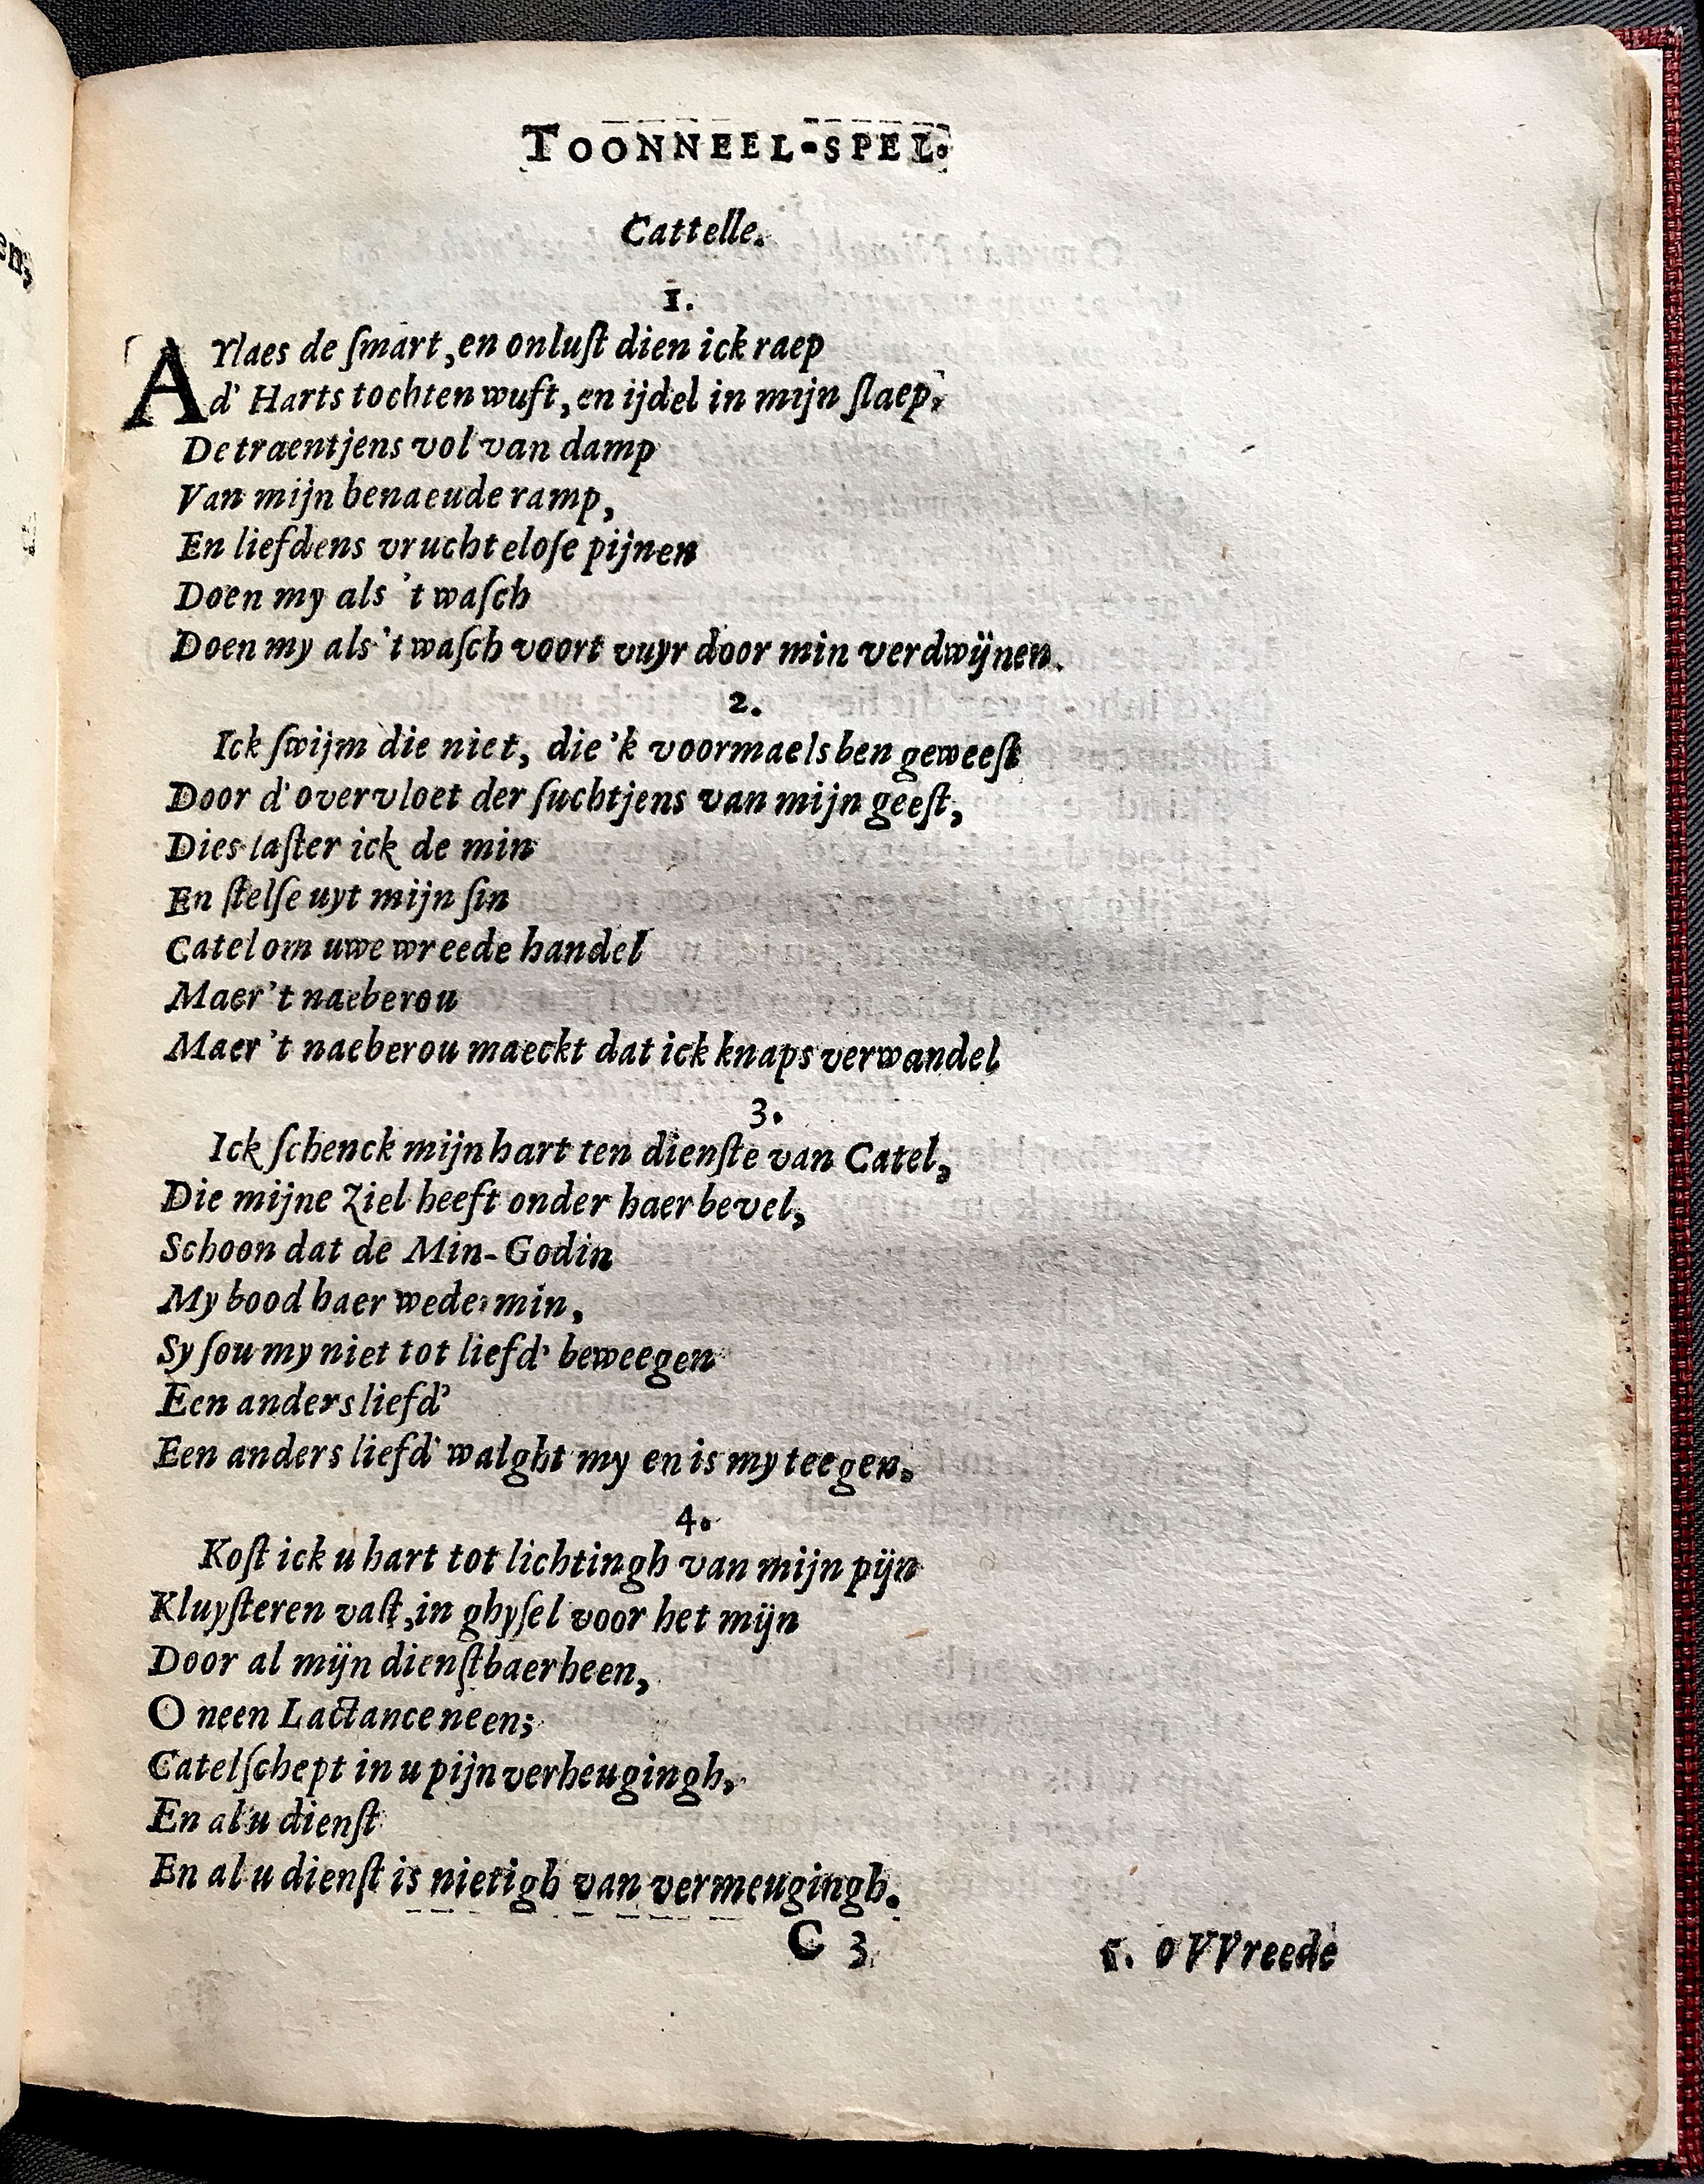 TOONNEEL-SPEL.
Cattelle.
1.
AYlaes de ſmart, en onluſt dien ick raep
d' Harts tochten wuft, en ijdel in mijn ſlaep,
De traentjens vol van damp
Van mijn benaeude ramp,
En liefdens vruchteloſe pijnen
Doen my als 't waſch
Doen my als 't waſch voort vuyr door min verdwijnen.
2.
Ick ſwijm die niet, die 'k voormaels ben geweeſt
Door d' overvloet der ſuchtjens van mijn geeſt,
Dies laſter ick de min
En ſtelſe uyt mijn ſin
Catel om uwe wreede handel
Maer 't naeberou
Maer 't naeberou maeckt dat ick knaps verwandel
3.
Ick ſchenck mijn hart ten dienſte van Catel,
Die mijne Ziel heeft onder haer bevel,
Schoon dat de Min-Godin
My bood haer weder min,
Sy ſou my niet tot liefd' beweegen
Een anders liefd'
Een anders liefd' walght my en is my teegen.
4.
Koſt ick u hart tot lichtingh van mijn pijn
Kluyſteren vaſt, in ghyſel voor het mijn
Door al mijn dienſtbaerheen,
O neen Lactance neen;
Catel ſchept in u pijn verheugingh,
En al u dienſt
En al u dienſt is nietigh van vermeugingh.
C 3
5. o VVreede
en,